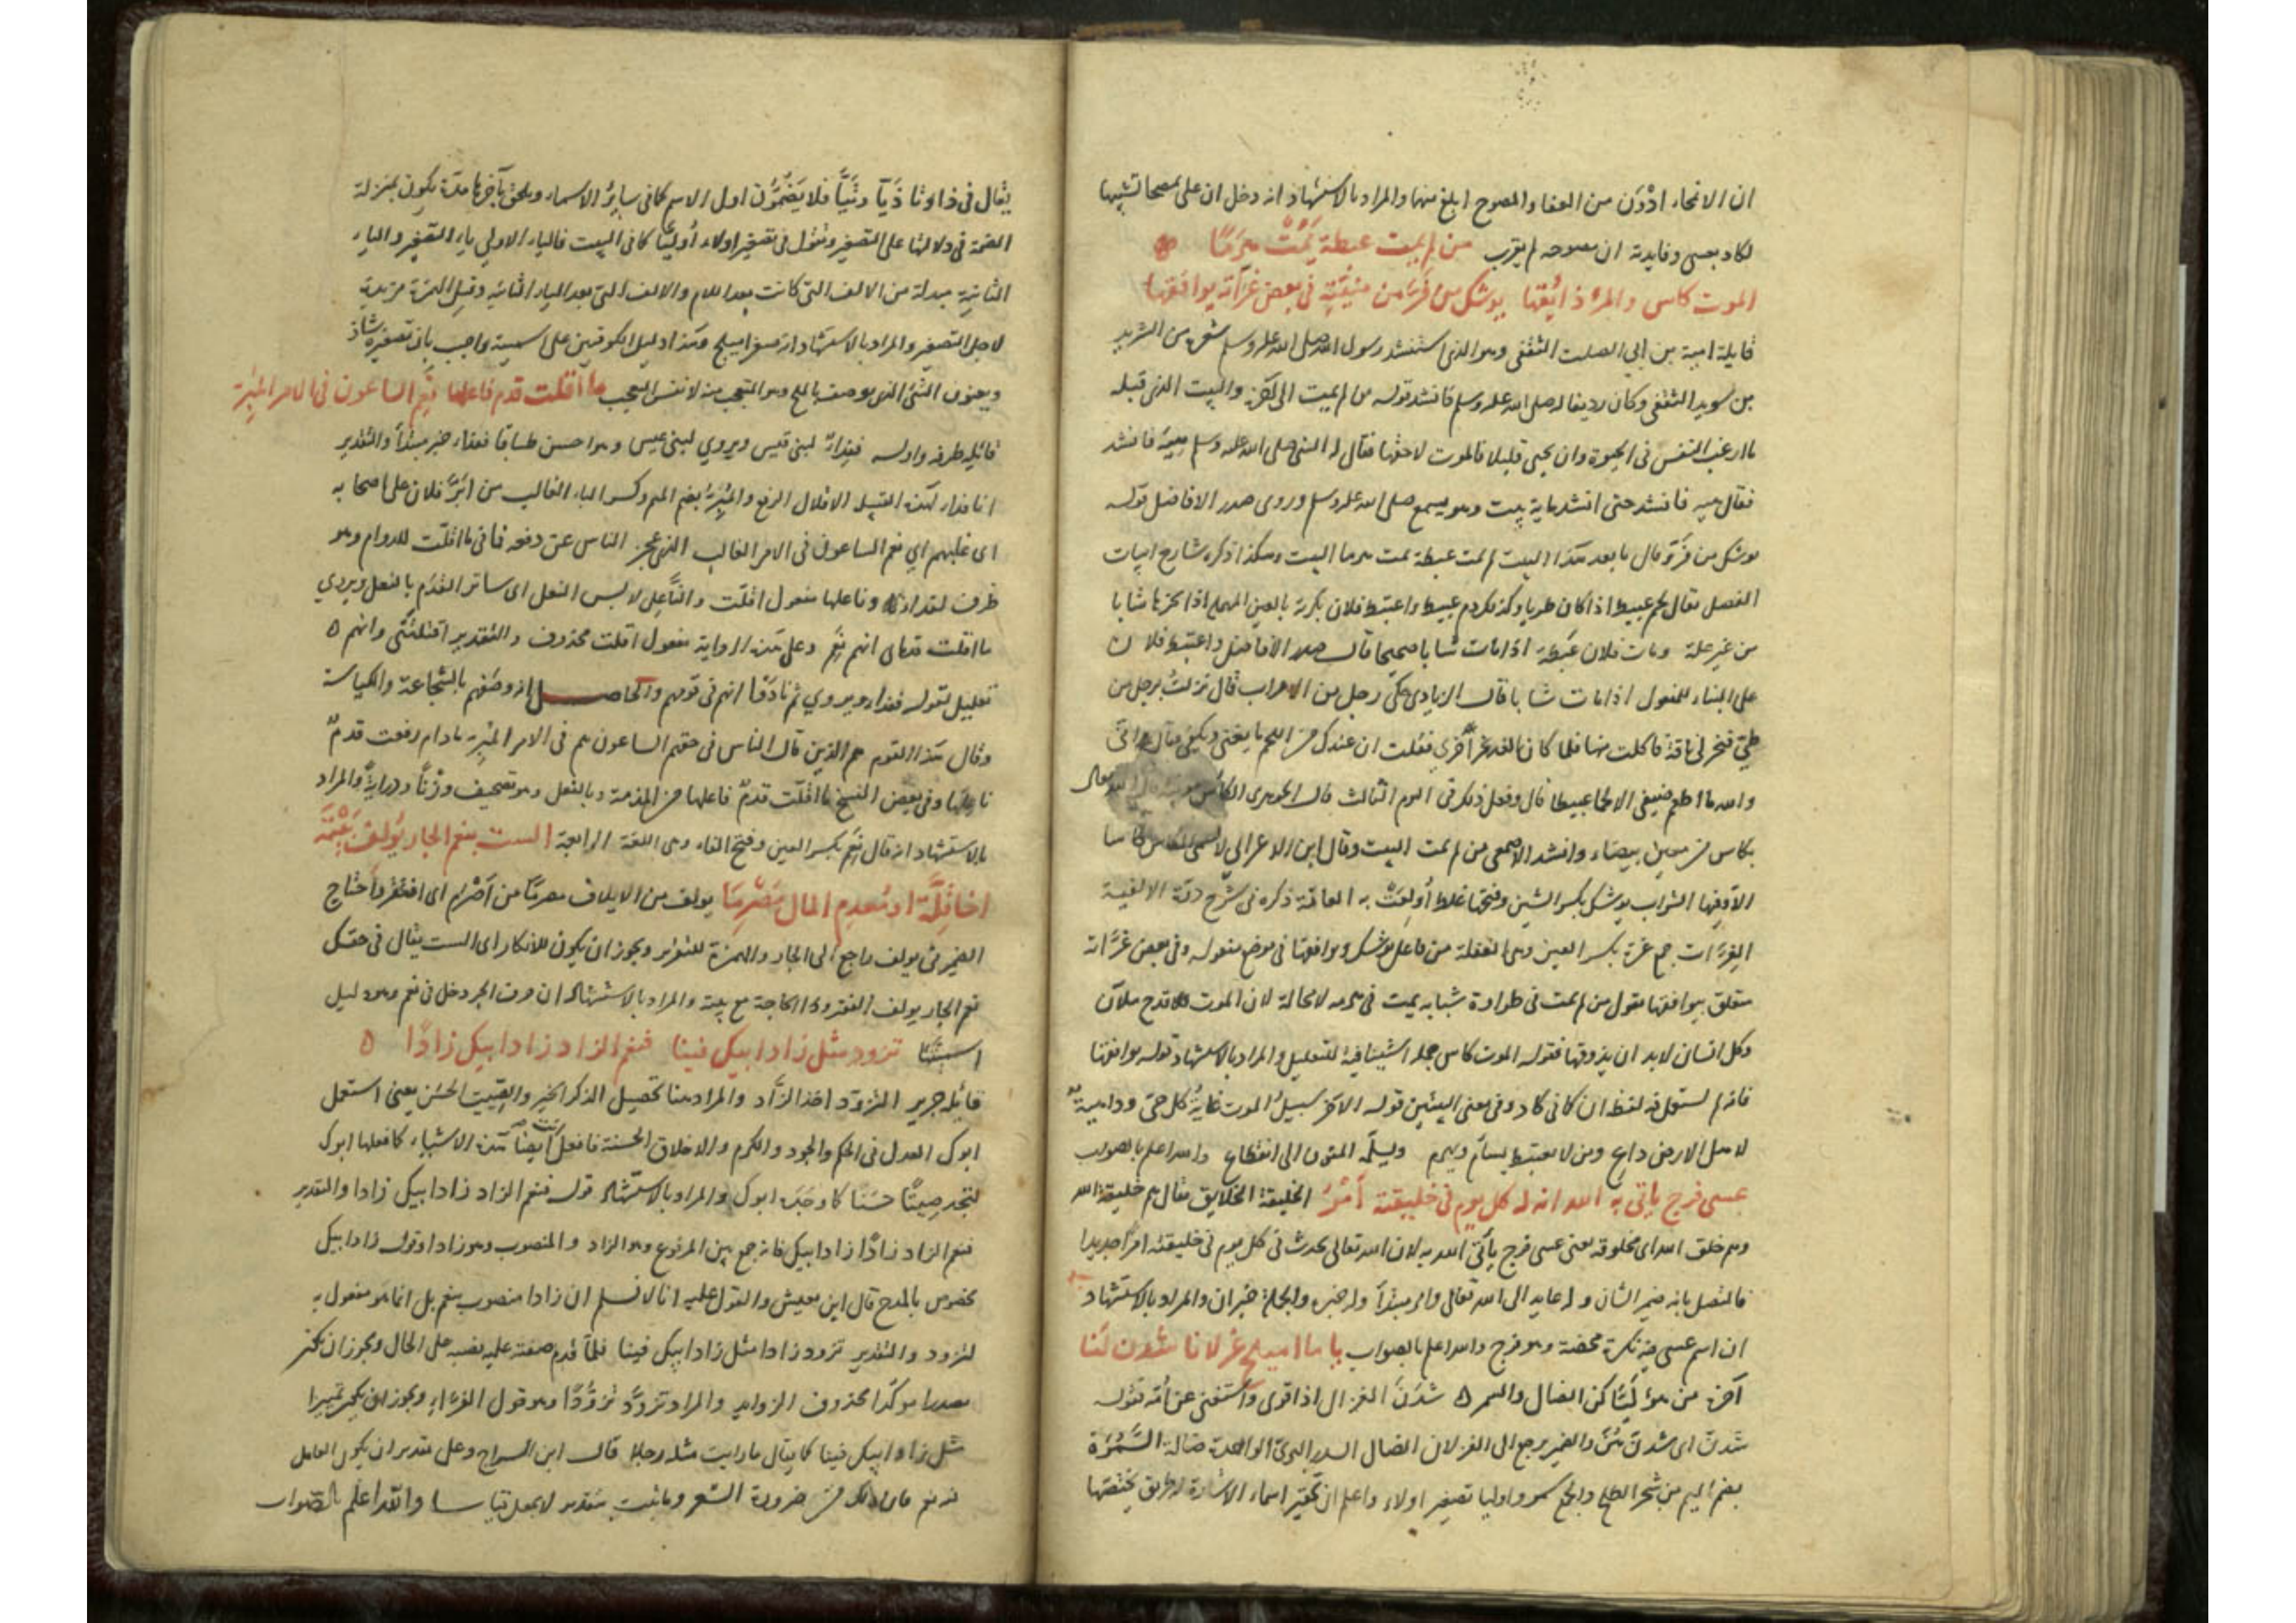 ان الانمحاء ادون من العفا والمصوح ابلغ منهما والمراد بالاستشهاد انه دخل ان على يمصحا تشبيها
لكاد بعسى وفايدته ان مصوحه لم يقرب من لم يمت عبطة يمت هرما
الموت كاس والمرء ذائقها يوشك من فر من منيته في بعض غراته يوافقها
قايله امية بن ابي الصلت الثقفي وهو الذي استنشد رسول الله صلى الله عليه وسلم شعره من الشريد
بن سويد الثقفي وكان رديفا له صلى الله عليه وسلم فانشد قوله من لم يمت الى آخره والبيت الذي قبله
ما ارغب النفس في الحيوة وان يحيى قليلا فالموت لاحقها فقال له النبي صلى الله عليه وسلم هيه فانشد
فقال هيه فانشد حتى انشد ماية بيت وهو يسمع صلى الله عليه وسلم وروى صدر الافاضل قوله
يوشك من فر وقال ما بعد هذا البيت لم يمت عبطة يمت هرما البيت وهكذا ذكره شارح ابيات
المفصل يقال لحم عبيط اذا كان طريا وكذلك دم عبيط واعتبط فلان بكرته بالعين المهملة اذا نحرها شابا
من غير علة ومات فلان عبطة اذا مات شابا صحيحا قال صدر الافاضل واعتبط فلان
على البناء للمفعول اذا مات شابا قال الزيادي حكى رجل من الاعراب قال نزلت برجل من
طيئ فنحر لي ناقة فاكلت منها فلما كان الغد نحر اخرى فقلت ان عندك من اللحم ما يغني ويكفي فقال اني
والله ما اطعم ضيفي الا لحما عبيطا قال وفعل ذلك في اليوم الثالث قال الجوهري الكاس
بكاس من معين بيضاء وانشد الاصمعي من لم يمت البيت وقال ابن الاعرابي لا تسمى الكاس كاسا
الا وفيها الشراب يوشك بكسر الشين وفتحها غلط اولعت به العامة ذكره في شرح
الغرات جمع غرة بكسر الغين وهي الغفلة من فاعل يوشك ويوافقها في موضع مفعوله وفي بعض غراته
متعلق بيوافقها يقول من لم يمت في طراوة شبابه يمت في هرمه لا محالة لان الموت كقدح ملآن
وكل انسان لابد ان يذوقها فقوله الموت كاس جملة استينافية للتعليل والمراد بالاستشهاد قوله يوافقها
فانه لم يستعمل فيه لفظ ان كما في كاد وفي معنى البيتين قوله الآخر سبيل الموت غاية كل حي وداعيه
لاهل الارض داع ومن لا يعتبط يسأم ويهرم ويسلمه المنون الى انقطاع والله اعلم بالصواب
عسى فرج ياتي به الله انه له كل يوم في خليقته امر الخليقة الخلايق يقال هم خليقة الله
وهم خلق الله اي مخلوقه يعني عسى فرج ياتي الله به لان الله تعالى يحدث في كل يوم في خليقته امرا جديدا
فالمتصل بانه ضمير الشان وله عايد الى الله تعالى وامر مبتدأ وله خبره والجملة خبر ان والمراد بالاستشهاد
ان اسم عسى فيه نكرة محضة وهو فرج والله اعلم بالصواب يا ما اميلح غزلانا شدن لنا
آخره من هؤليائكن الضال والسمر شدن الغزال اذا قوى واستغنى عن امه فقوله
شدن اي شدن هن والضمير يرجع الى الغزلان الضال السدر البري الواحدة ضالة السمرة
بضم الميم من شجر الطلح والجمع سمر واوليا تصغير اولاء واعلم ان تحقير اسماء الاشارة له طريق يختصها
يقال في ذا وتا ذيا وتيا فلا يضمون اول الاسم كما في ساير الاسماء ويلحق بآخرها مدة يكون بمنزلة
الضمة في دلالتها على التصغير وتقول في تصغير اولاء اوليا كما في البيت فالياء الاولى ياء التصغير والياء
الثانية مبدلة من الالف التي كانت بعد اللام والالف التي بعد الياء الثانية وقبل الهمزة مزيدة
لاجل التصغير والمراد بالاستشهاد انه صغر اميلح وهذا دليل الكوفيين على اسميته واجيب بان تصغيره شاذ
ويعنون الشئ الذي يوصف بالملح وهو المتعجب منه لا نفس التعجب ما اقلت قدم فاعلها نعم الساعون في الامر المبر
قائله طرفة واوله ففداء لبني قيس ويروي لبني عبس وهو احسن طباقا ففداء خبر مبتدأ والتقدير
انا فداء لهذه القبيلة الاقلال الرفع والمبر بضم الميم وكسر الباء الغالب من ابر فلان على اصحابه
اي غلبهم اي نعم الساعون في الامر الغالب الذي عجز الناس عن دفعه فما في ما اقلت للدوام وهو
ظرف لفداء وناعلها مفعول اقلت والناعل لابس النعل اي ساتر القدم بالنعل ويروي
ما اقلت قدماي انهم نعم وعلى هذه الرواية مفعول اقلت محذوف والتقدير اقلتني وانهم
تعليل لقوله ففداء ويروي ثم نادوا انهم في قومهم والحاصل انه وصفهم بالشجاعة والكياسة
وقال هذا القوم هم الذين قال الناس في حقهم الساعون هم في الامر المبر ما دام رفعت قدم
ناعلها وفي بعض النسخ ما اقلت قدم فاعلها من المذمة وبالنعل وهو تصحيف وزنا ودراية والمراد
بالاستشهاد انه قال نعم بكسر العين وفتح الفاء وهي اللغة الرابعة الست بنعم الجار يولف بيته
اخا قلة او معدم المال مصرما يولف من الايلاف مصرما من اصرم اي افتقر واحتاج
الضمير في يولف راجع الى الجار والهمزة للتقرير ويجوز ان يكون للانكار اي الست يقال في حقك
نعم الجار يولف الفقر وذا الحاجة مع بيته والمراد بالاستشهاد ان حرف الجر دخل في نعم وهو دليل
اسميتها تزود مثل زاد ابيك فينا فنعم الزاد زاد ابيك زادا
قائله جرير التزود اخذ الزاد والمراد هنا تحصيل الذكر الخير والصيت الحسن يعني استعمل
ابوك العدل في الحكم والجود والكرم والاخلاق الحسنة فافعل انت ايضا هذه الاشياء كما فعلها ابوك
لتجد صيتا حسنا كما وجد ابوك والمراد بالاستشهاد قوله فنعم الزاد زاد ابيك زادا والتقدير
فنعم الزاد زادا زاد ابيك فانه جمع بين المرفوع وهو الزاد والمنصوب وهو زادا وقوله زاد ابيك
مخصوص بالمدح قال ابن يعيش والقول عليه انا لا نسلم ان زادا منصوب بنعم بل انما هو مفعول به
لتزود والتقدير تزود زادا مثل زاد ابيك فينا فلما قدم صفته عليه نصبه على الحال ويجوز ان يكون
مصدرا موكدا محذوف الزوايد والمراد تزود تزودا وهو قول الفراء ويجوز ان يكون تميزا
مثل زاد ابيك فينا كما يقال ما رايت مثله رجلا قال ابن السراج وعلى تقدير ان يكون العامل
فيه نعم فان ذلك من ضرورة الشعر وما يثبت بتقدير لا يجعل قياسا والله اعلم بالصواب